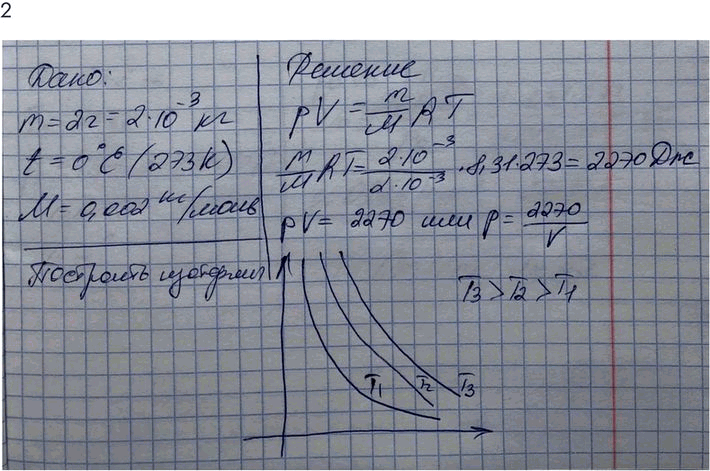 2
Дано:
m = 2г = 2·10⁻³ кг
t = 0°C (273К)
M = 0,002 кг/моль
Построить изотермы
Решение
pV = m/M RT
m/M RT = 2·10⁻³/2·10⁻³ · 8,31·273 = 2270 Дж
pV = 2270 или p = 2270/V
T₃ > T₂ > T₁
T₁ T₂ T₃